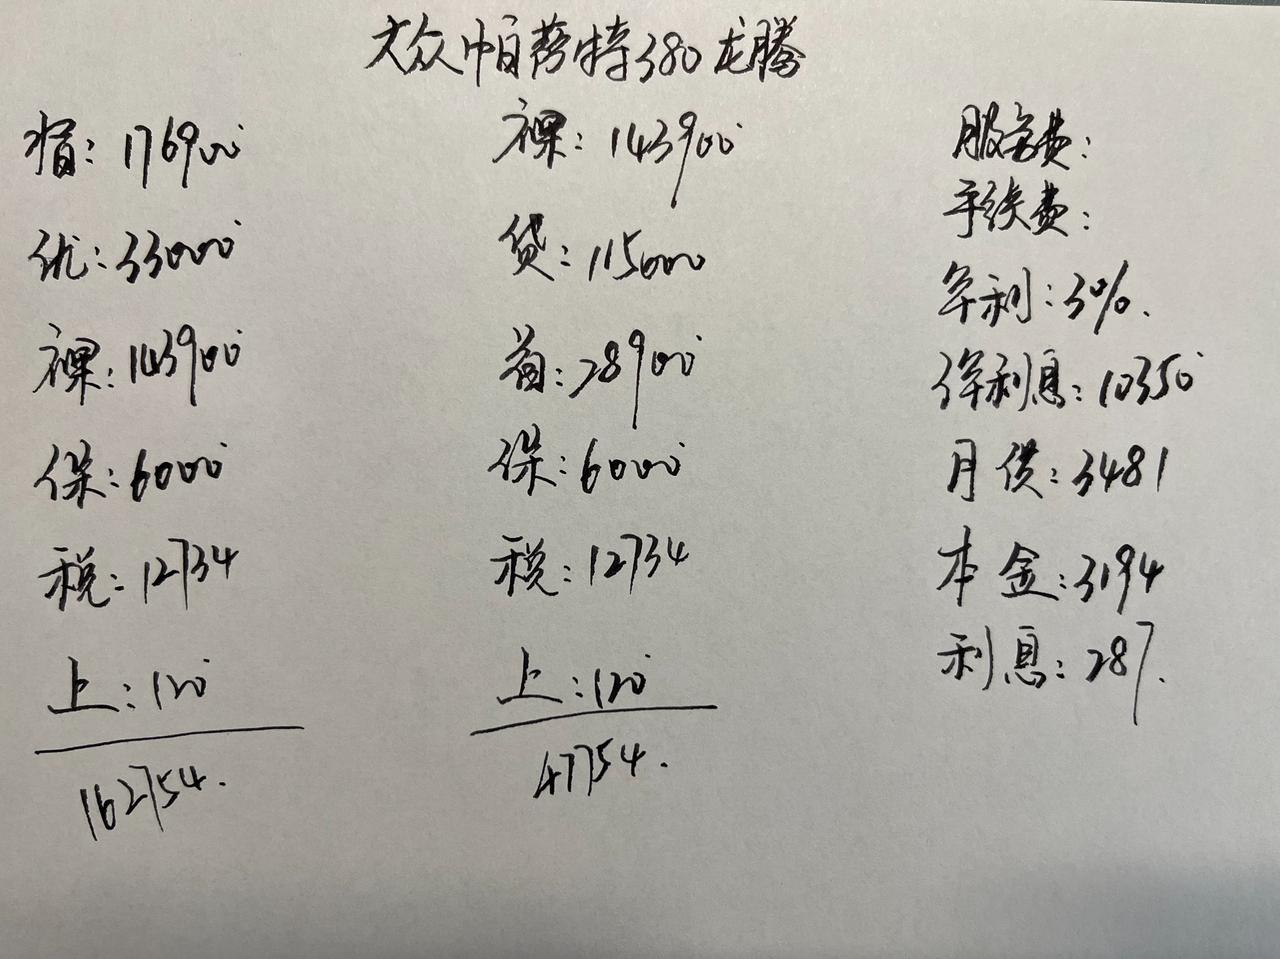 大众帕萨特380龙腾
指: 176900
优: 33000
裸: 143900
保: 6000
税: 12734
上: 120
162754.
裸: 143900
贷: 115000
首: 28900
保: 6000
税: 12734
上: 120
47754.
服务费:
手续费:
年利: 3%.
年利息: 10350
月供: 3481
本金: 3194
利息: 287.